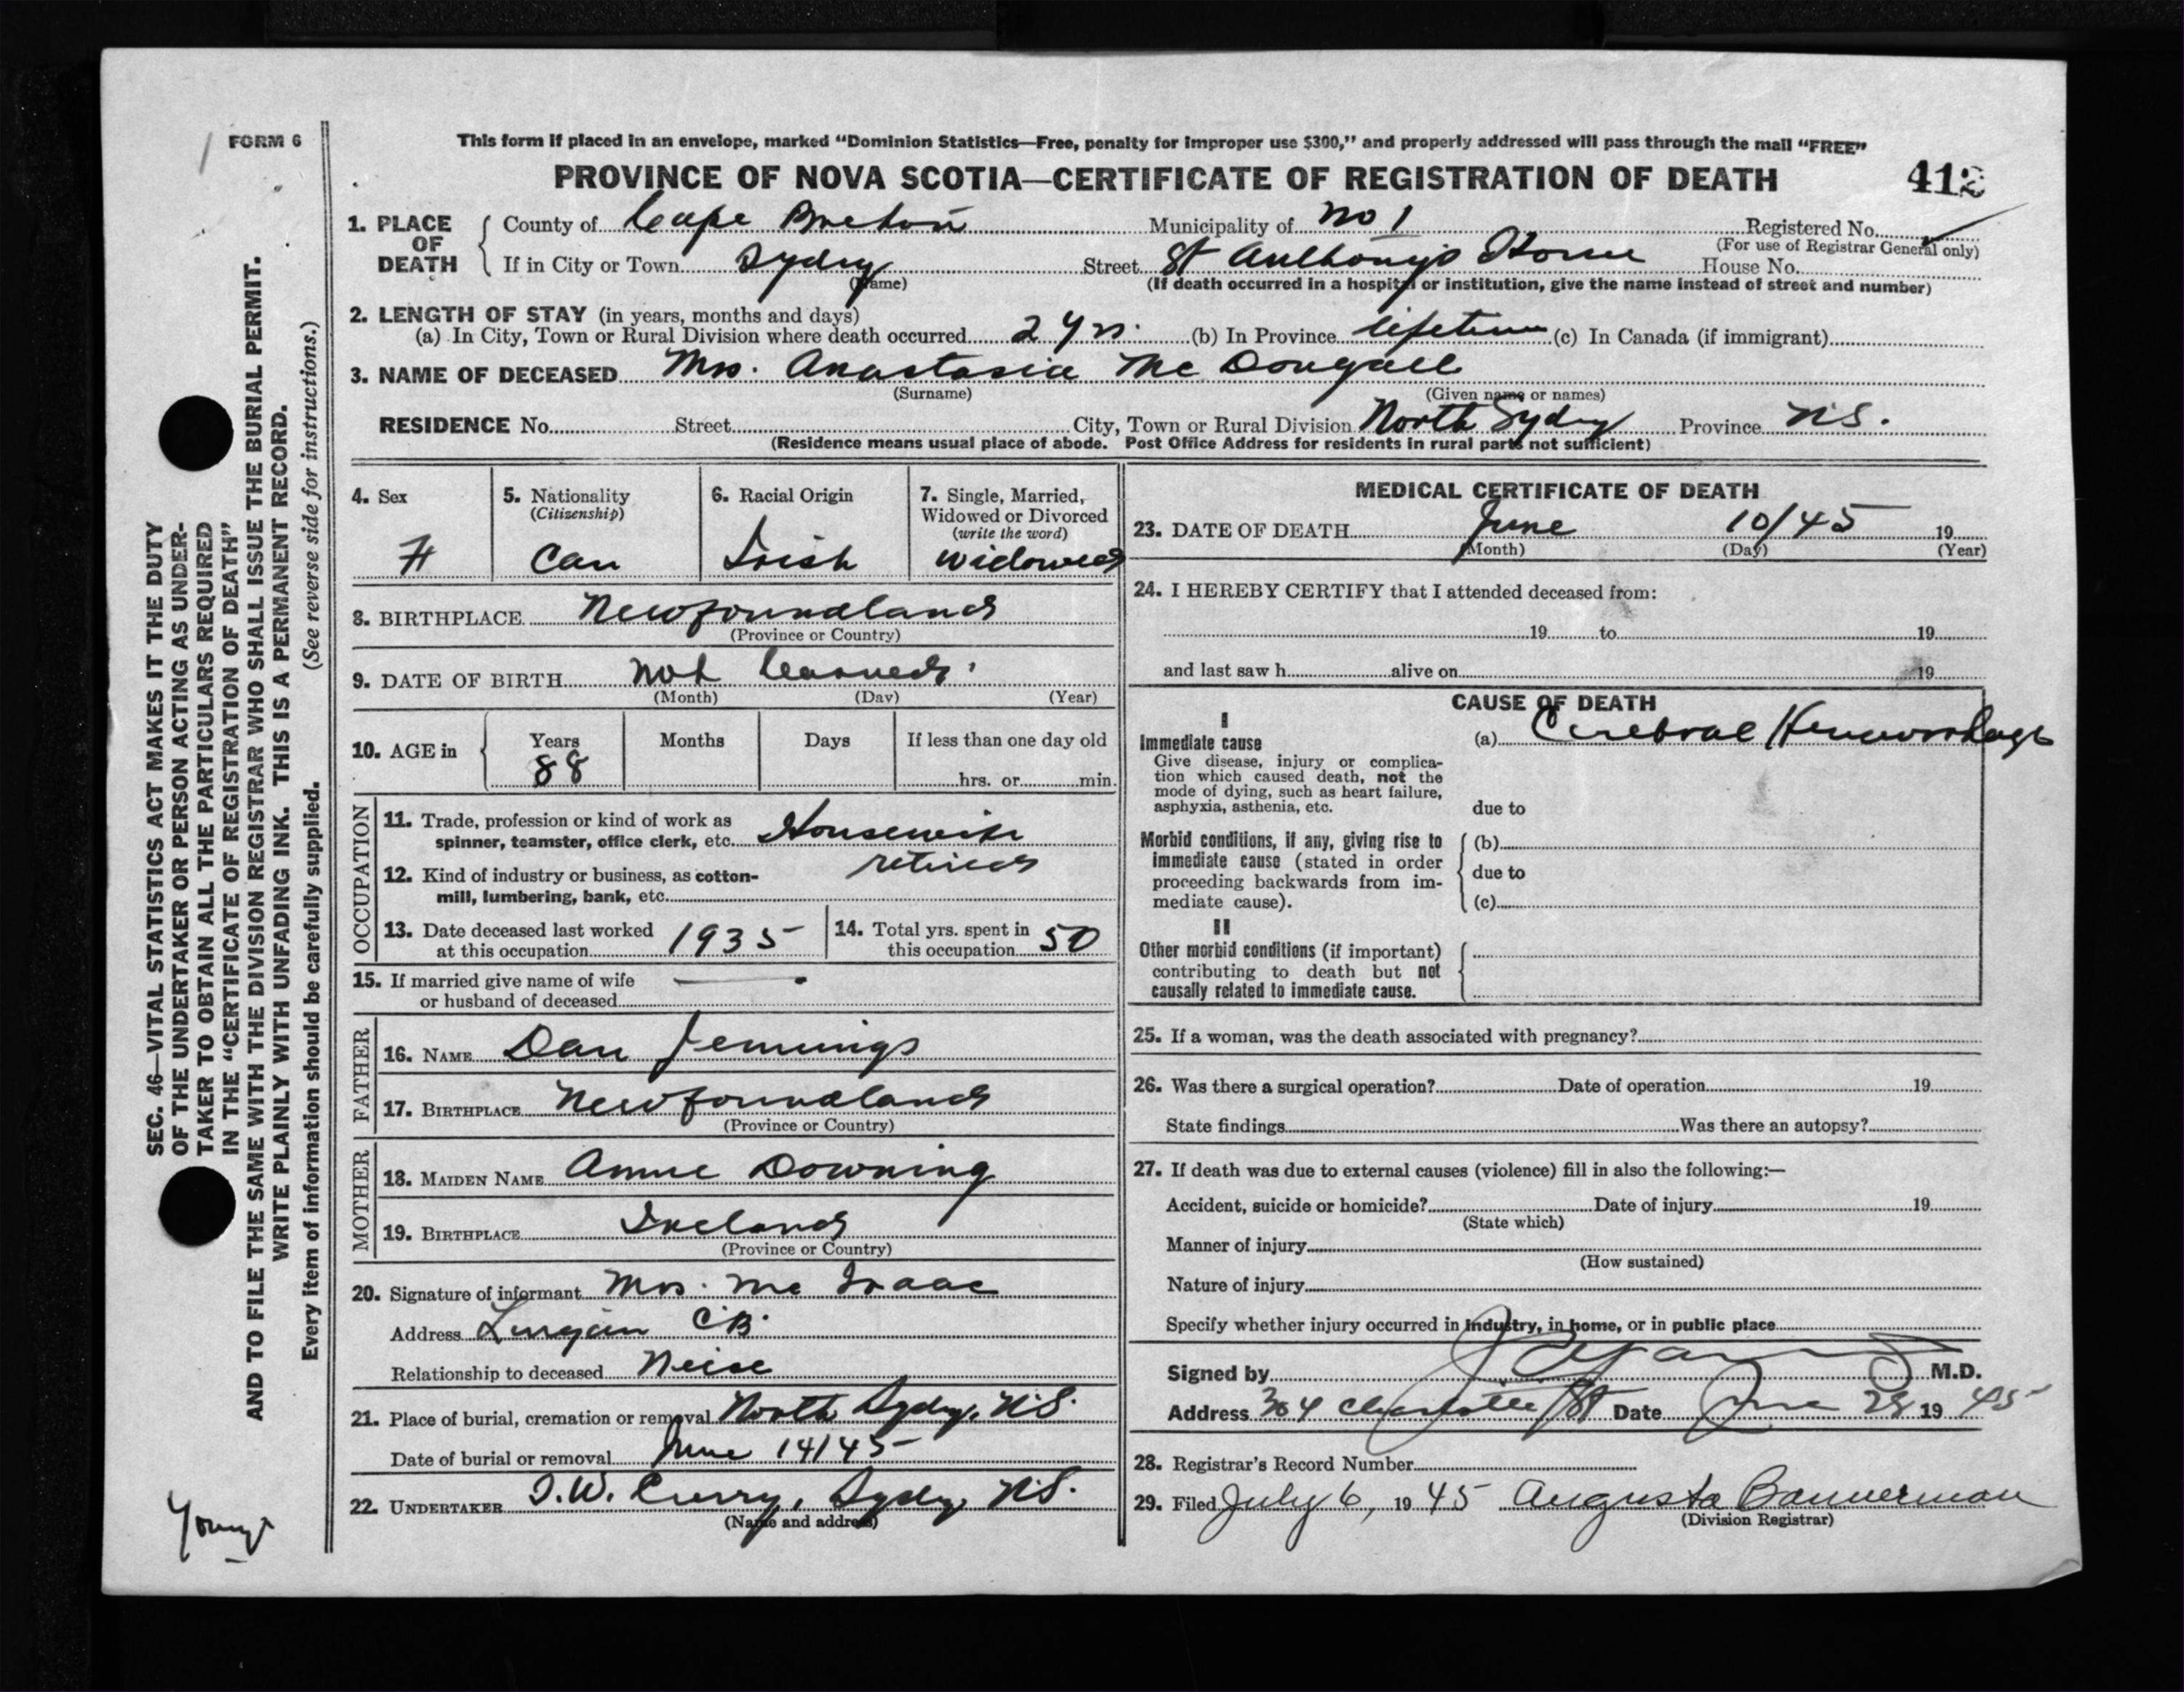 FORM 6
This form if placed in an envelope, marked “Dominion Statistics—Free, penalty for improper use $300,” and properly addressed will pass through the mail “FREE”
PROVINCE OF NOVA SCOTIA—CERTIFICATE OF REGISTRATION OF DEATH
412
1. PLACE OF DEATH
County of Cape Breton Municipality of No 1 Registered No.
(For use of Registrar General only)
If in City or Town Sydney Street St Anthony's Home House No.
(Name) (If death occurred in a hospital or institution, give the name instead of street and number)
2. LENGTH OF STAY (in years, months and days)
(a) In City, Town or Rural Division where death occurred 2 yrs. (b) In Province lifetime (c) In Canada (if immigrant)
3. NAME OF DECEASED Mrs. Anastasia Mc Dougall
(Surname) (Given name or names)
RESIDENCE No. Street City, Town or Rural Division North Sydney Province N.S.
(Residence means usual place of abode. Post Office Address for residents in rural parts not sufficient)
4. Sex
F
5. Nationality
(Citizenship)
Can
6. Racial Origin
Irish
7. Single, Married,
Widowed or Divorced
(write the word)
widowed
8. BIRTHPLACE Newfoundland
(Province or Country)
9. DATE OF BIRTH not learned.
(Month) (Day) (Year)
10. AGE in
Years Months Days If less than one day old
88 hrs. or min.
OCCUPATION
11. Trade, profession or kind of work as
spinner, teamster, office clerk, etc. Housewife
retired
12. Kind of industry or business, as cotton-
mill, lumbering, bank, etc.
13. Date deceased last worked
at this occupation 1935
14. Total yrs. spent in
this occupation 50
15. If married give name of wife
or husband of deceased —
FATHER
16. NAME Dan Jennings
17. BIRTHPLACE Newfoundland
(Province or Country)
MOTHER
18. MAIDEN NAME Annie Downing
19. BIRTHPLACE Ireland
(Province or Country)
20. Signature of informant Mrs. Mc Isaac
Address Lingan C.B.
Relationship to deceased Neise
21. Place of burial, cremation or removal North Sydney, N.S.
Date of burial or removal June 14/45
22. UNDERTAKER T.W. Curry, Sydney N.S.
(Name and address)
MEDICAL CERTIFICATE OF DEATH
23. DATE OF DEATH June 10/45 19
(Month) (Day) (Year)
24. I HEREBY CERTIFY that I attended deceased from:
19 to 19
and last saw h alive on 19
CAUSE OF DEATH
I
Immediate cause
Give disease, injury or complica-
tion which caused death, not the
mode of dying, such as heart failure,
asphyxia, asthenia, etc.
(a) Cerebral Hemorrhage
due to
Morbid conditions, if any, giving rise to
immediate cause (stated in order
proceeding backwards from im-
mediate cause).
(b)
due to
(c)
II
Other morbid conditions (if important)
contributing to death but not
causally related to immediate cause.
25. If a woman, was the death associated with pregnancy?
26. Was there a surgical operation? Date of operation 19
State findings Was there an autopsy?
27. If death was due to external causes (violence) fill in also the following:—
Accident, suicide or homicide? Date of injury 19
(State which)
Manner of injury
(How sustained)
Nature of injury
Specify whether injury occurred in industry, in home, or in public place
Signed by M.D.
Address 304 Charlotte St Date June 28 1945
28. Registrar's Record Number
29. Filed July 6, 1945 Augusta Bannerman
(Division Registrar)
SEC. 46—VITAL STATISTICS ACT MAKES IT THE DUTY
OF THE UNDERTAKER OR PERSON ACTING AS UNDER-
TAKER TO OBTAIN ALL THE PARTICULARS REQUIRED
IN THE “CERTIFICATE OF REGISTRATION OF DEATH”
AND TO FILE THE SAME WITH THE DIVISION REGISTRAR WHO SHALL ISSUE THE BURIAL PERMIT.
WRITE PLAINLY WITH UNFADING INK. THIS IS A PERMANENT RECORD.
Every item of information should be carefully supplied. (See reverse side for instructions.)